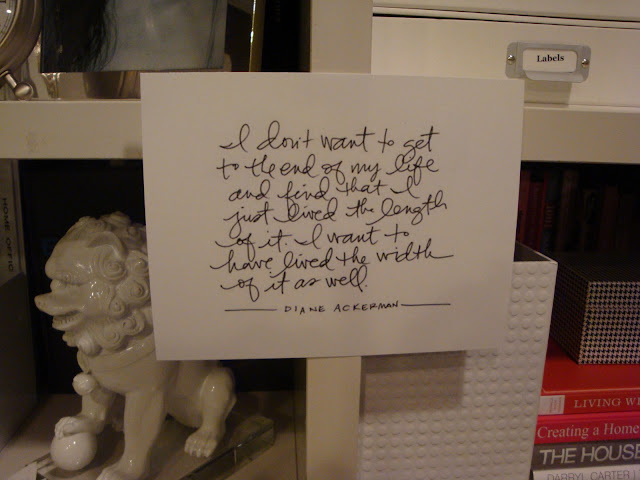 Labels
I don't want to get
to the end of my life
and find that I
just lived the length
of it. I want to
have lived the width
of it as well.
DIANE ACKERMAN
HOME OFFIC
LIVING WI
Creating a Home
THE HOUSE
DARRYL CARTER